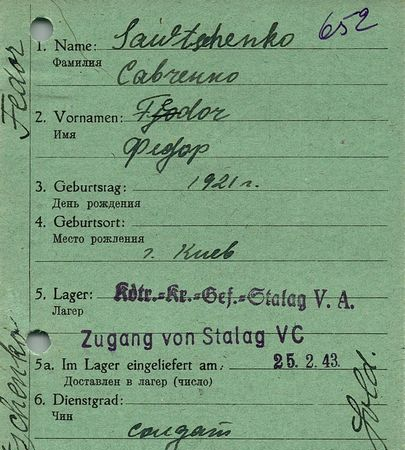 652
1. Name: Sawtschenko
Фамилия Савченко
2. Vornamen: Fjodor
Имя Федор
3. Geburtstag: 1921 г.
День рождения
4. Geburtsort:
Место рождения г. Киев
5. Lager: Kdtr.-Kr.-Gef.-Stalag V. A.
Лагер
Zugang von Stalag VC
5a. Im Lager eingeliefert am: 25. 2. 43.
Доставлен в лагер (число)
6. Dienstgrad:
Чин солдат
Fedor
tschenko
Sold.